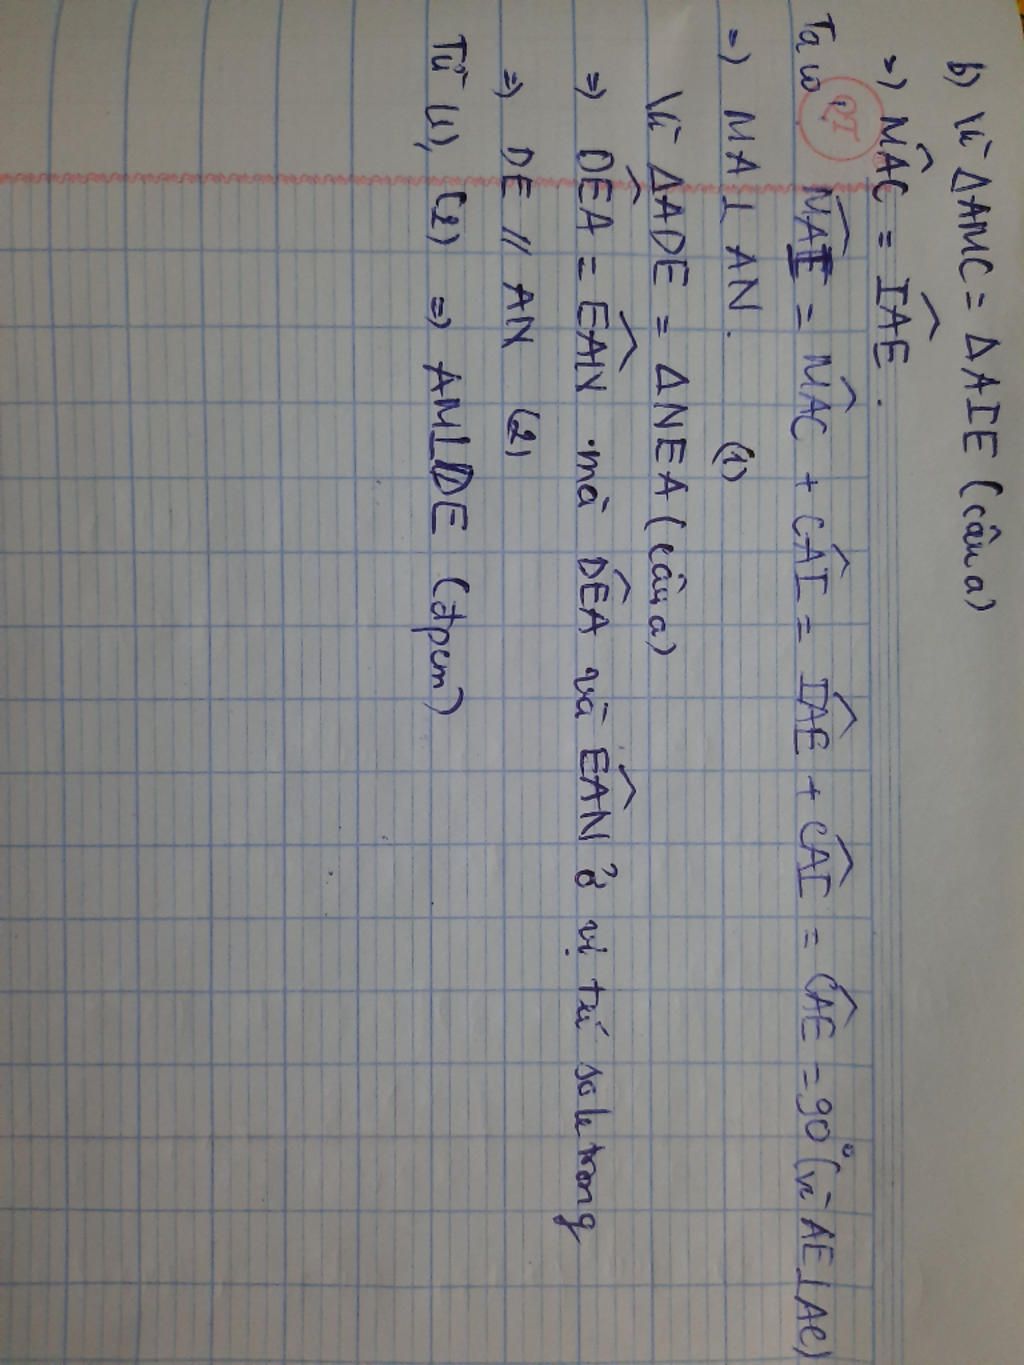 b) Vì ΔAMC = ΔAIE (câu a)
=) M̂AC = ÎAE.
Ta có: M̂AI = M̂AC + CÂI = ÎAE + CÂI = CÂE = 90° (vì AE⊥AC)
=) MA⊥AN. (1)
Vì ΔADE = ΔNEA (câu a)
=) DÊA = EÂN mà DÊA và EÂN ở vị trí so le trong
=) DE // AN (2)
Từ (1), (2) =) AM⊥DE (đpcm)